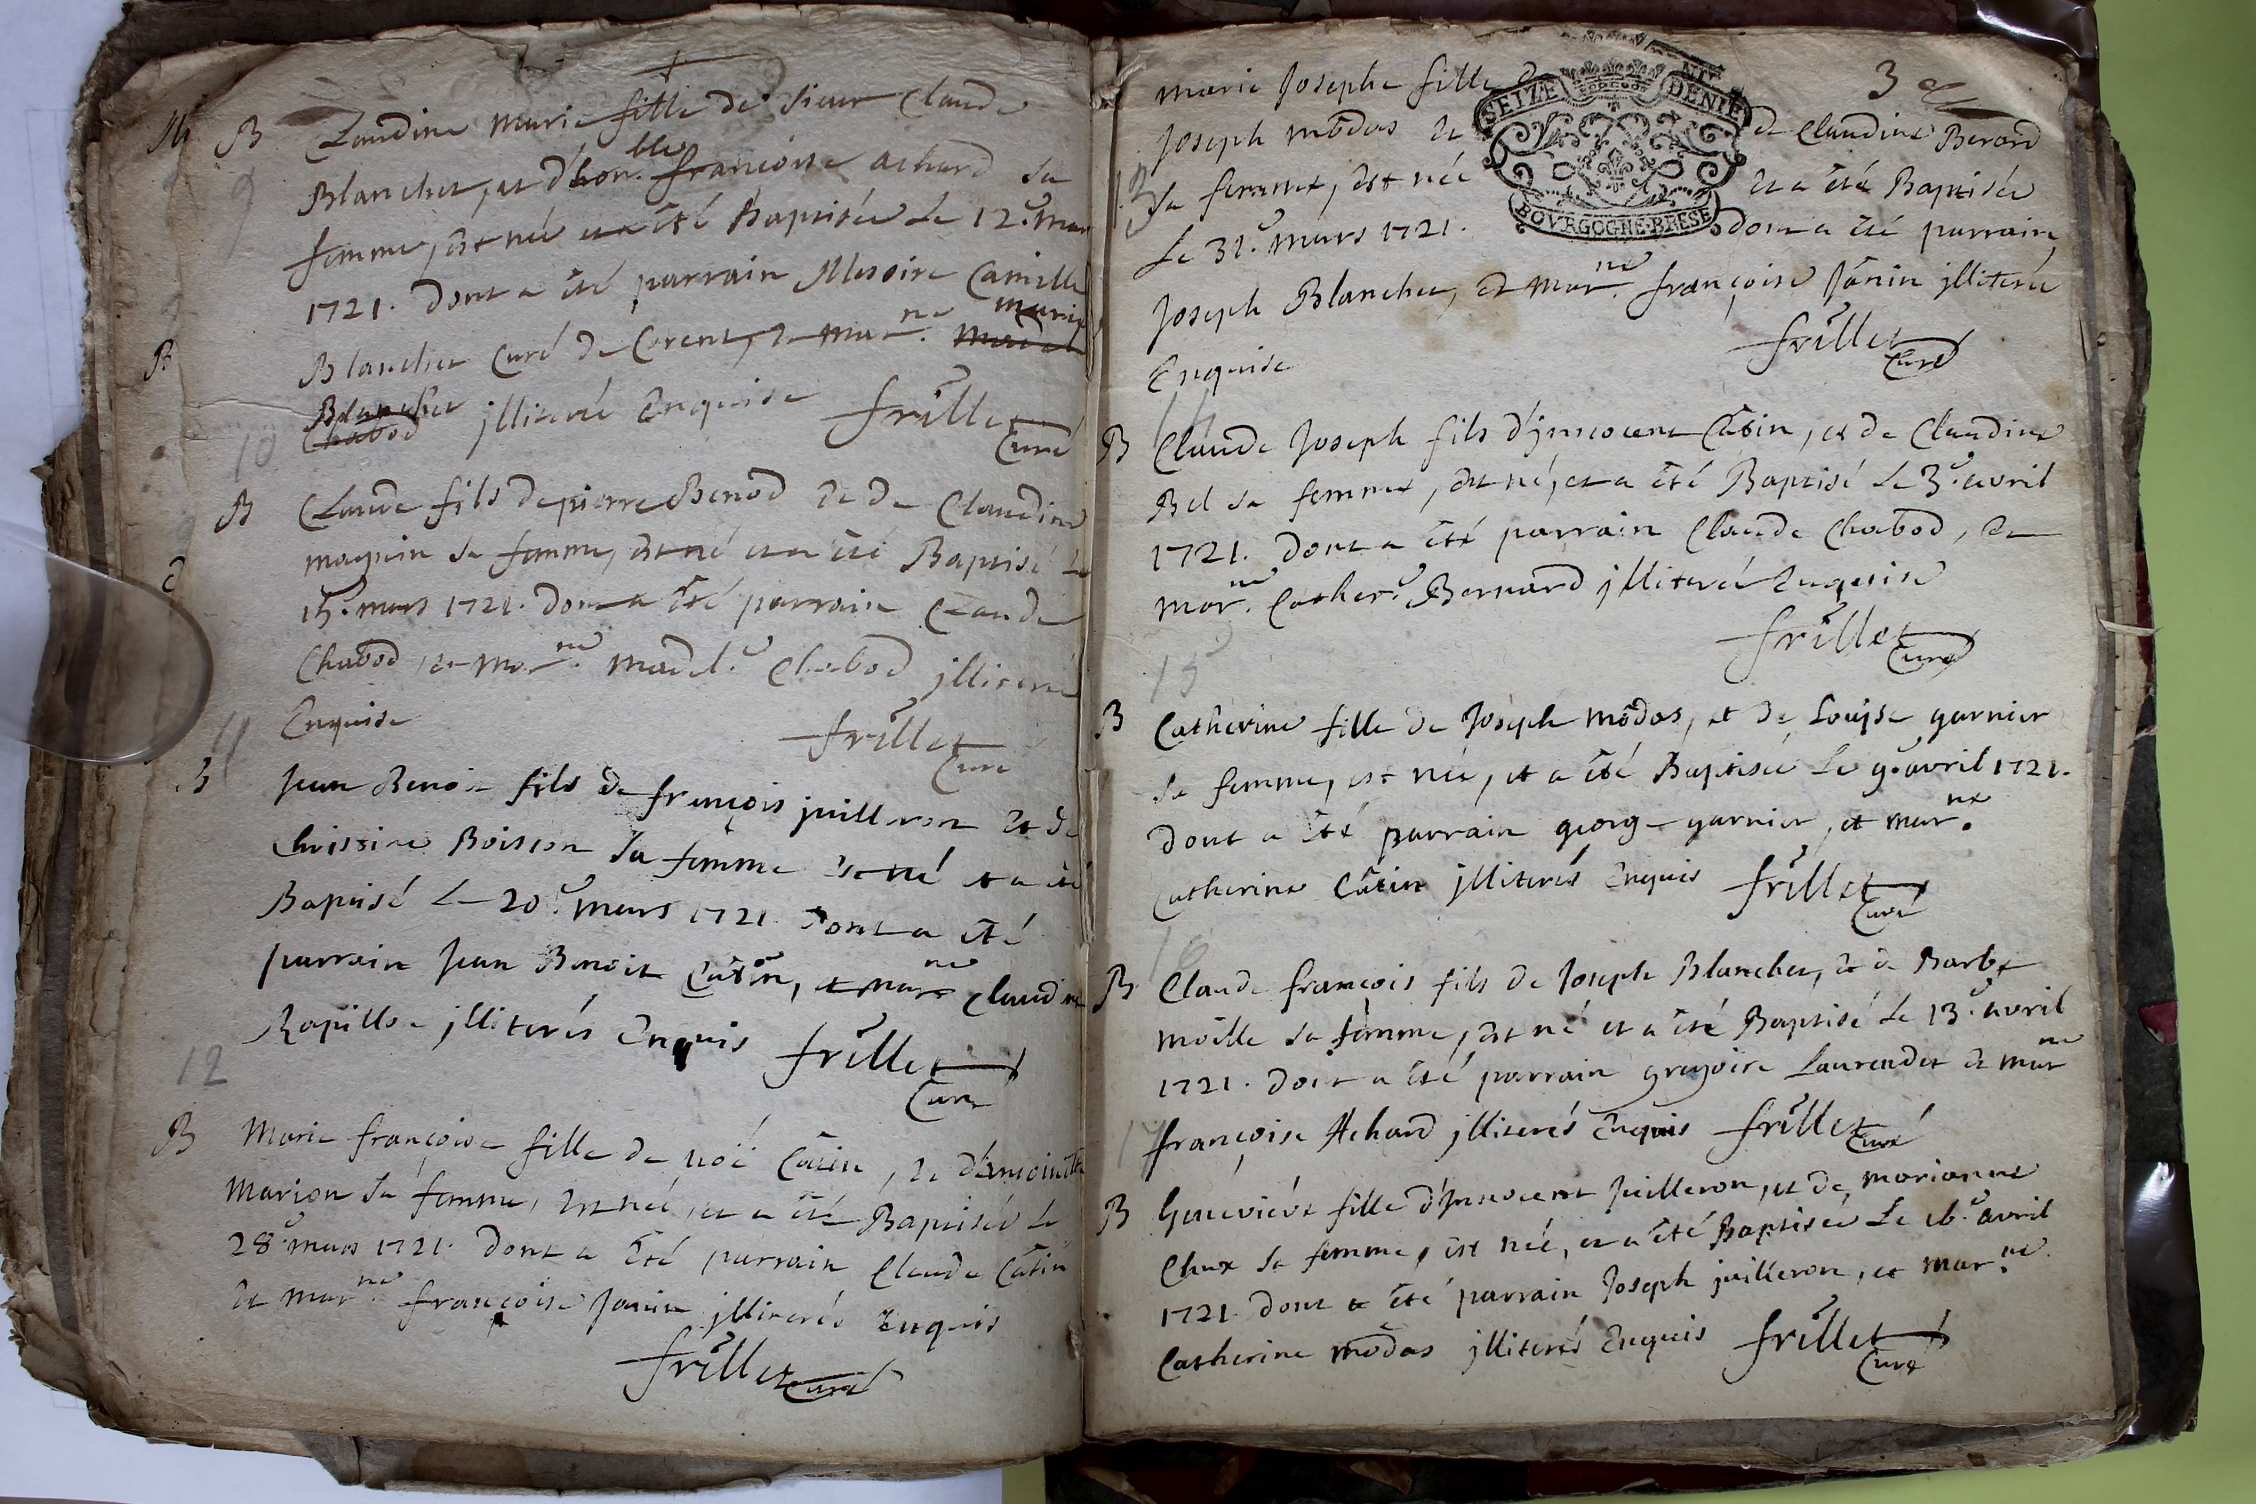 B Claudine Marie fille de sieur Claude
Blanchet, et d'hon.ble françoise achard sa
femme, est née et a été Baptisée Le 12.e Mars
1721. dont a été parrain Messire Camille
Blanchet Curé de Corent, et mar.ne Marie
Blanchet jlliterée Enquise frillet
Curé
10
B Claude fils de pierre Benod et de Claudine
magnin sa femme, est né et a été Baptisé Le
15.e mars 1721. dont a été parrain Claude
Chabod, et mar.ne Madel.e Chabod jlliterée
Enquise frillet
Curé
11
B Jean Benoit fils de françois juilleron et de
Christine Boisson sa femme est né et a été
Baptisé Le 20.e mars 1721 dont a été
parrain Jean Benoit Câtin, et mar.ne Claudine
Rapillon jlliterés Enquis frillet
Curé
12
B Marie françoise fille de noé Câtin, et d'Antoinette
Marion sa femme, est née, et a été Baptisée Le
28.e mars 1721. dont a été parrain Claude Câtin
et mar.ne françoise Janin jlliterés Enquis
frillet Curé
3
SEIZE DENIE
BOVRGOGNE·BRESE
marie Josephe fille de
Joseph modas et de Claudine Berard
13
sa femme, est née et a été Baptisée
Le 31.e Mars 1721. dont a été parrain
Joseph Blanchet, et mar.ne françoise Janin jlliterée
Enquise frillet
Curé
14
B Claude Joseph fils d'jnnocent Câtin, et de Claudine
Bel sa femme, est né, et a été Baptisé Le 3.e avril
1721. dont a été parrain Claude Chabod, et
mar.ne Cather.e Bernard jlliterée Enquise
frillet
Curé
15
B Catherine fille de Joseph modas, et de Louise garnier
sa femme, est née, et a été Baptisée Le 9.e avril 1721.
dont a été parrain george garnier, et mar.ne
Catherine Câtin jlliterés Enquis frillet
Curé
16
B Claude françois fils de Joseph Blanchet, et de Barbe
moëlle sa femme, est né et a été Baptisé Le 13.e avril
1721. dont a été parrain gregoire Laurendet et mar.ne
françoise Achard jlliterés Enquis frillet
Curé
B Geneviéve fille d'Jnnocent juilleron, et de marianne
Chux sa femme, est née, et a été Baptisée Le 16.e avril
1721. dont a été parrain Joseph juilleron, et mar.ne
Catherine modas jlliterés Enquis frillet
Curé